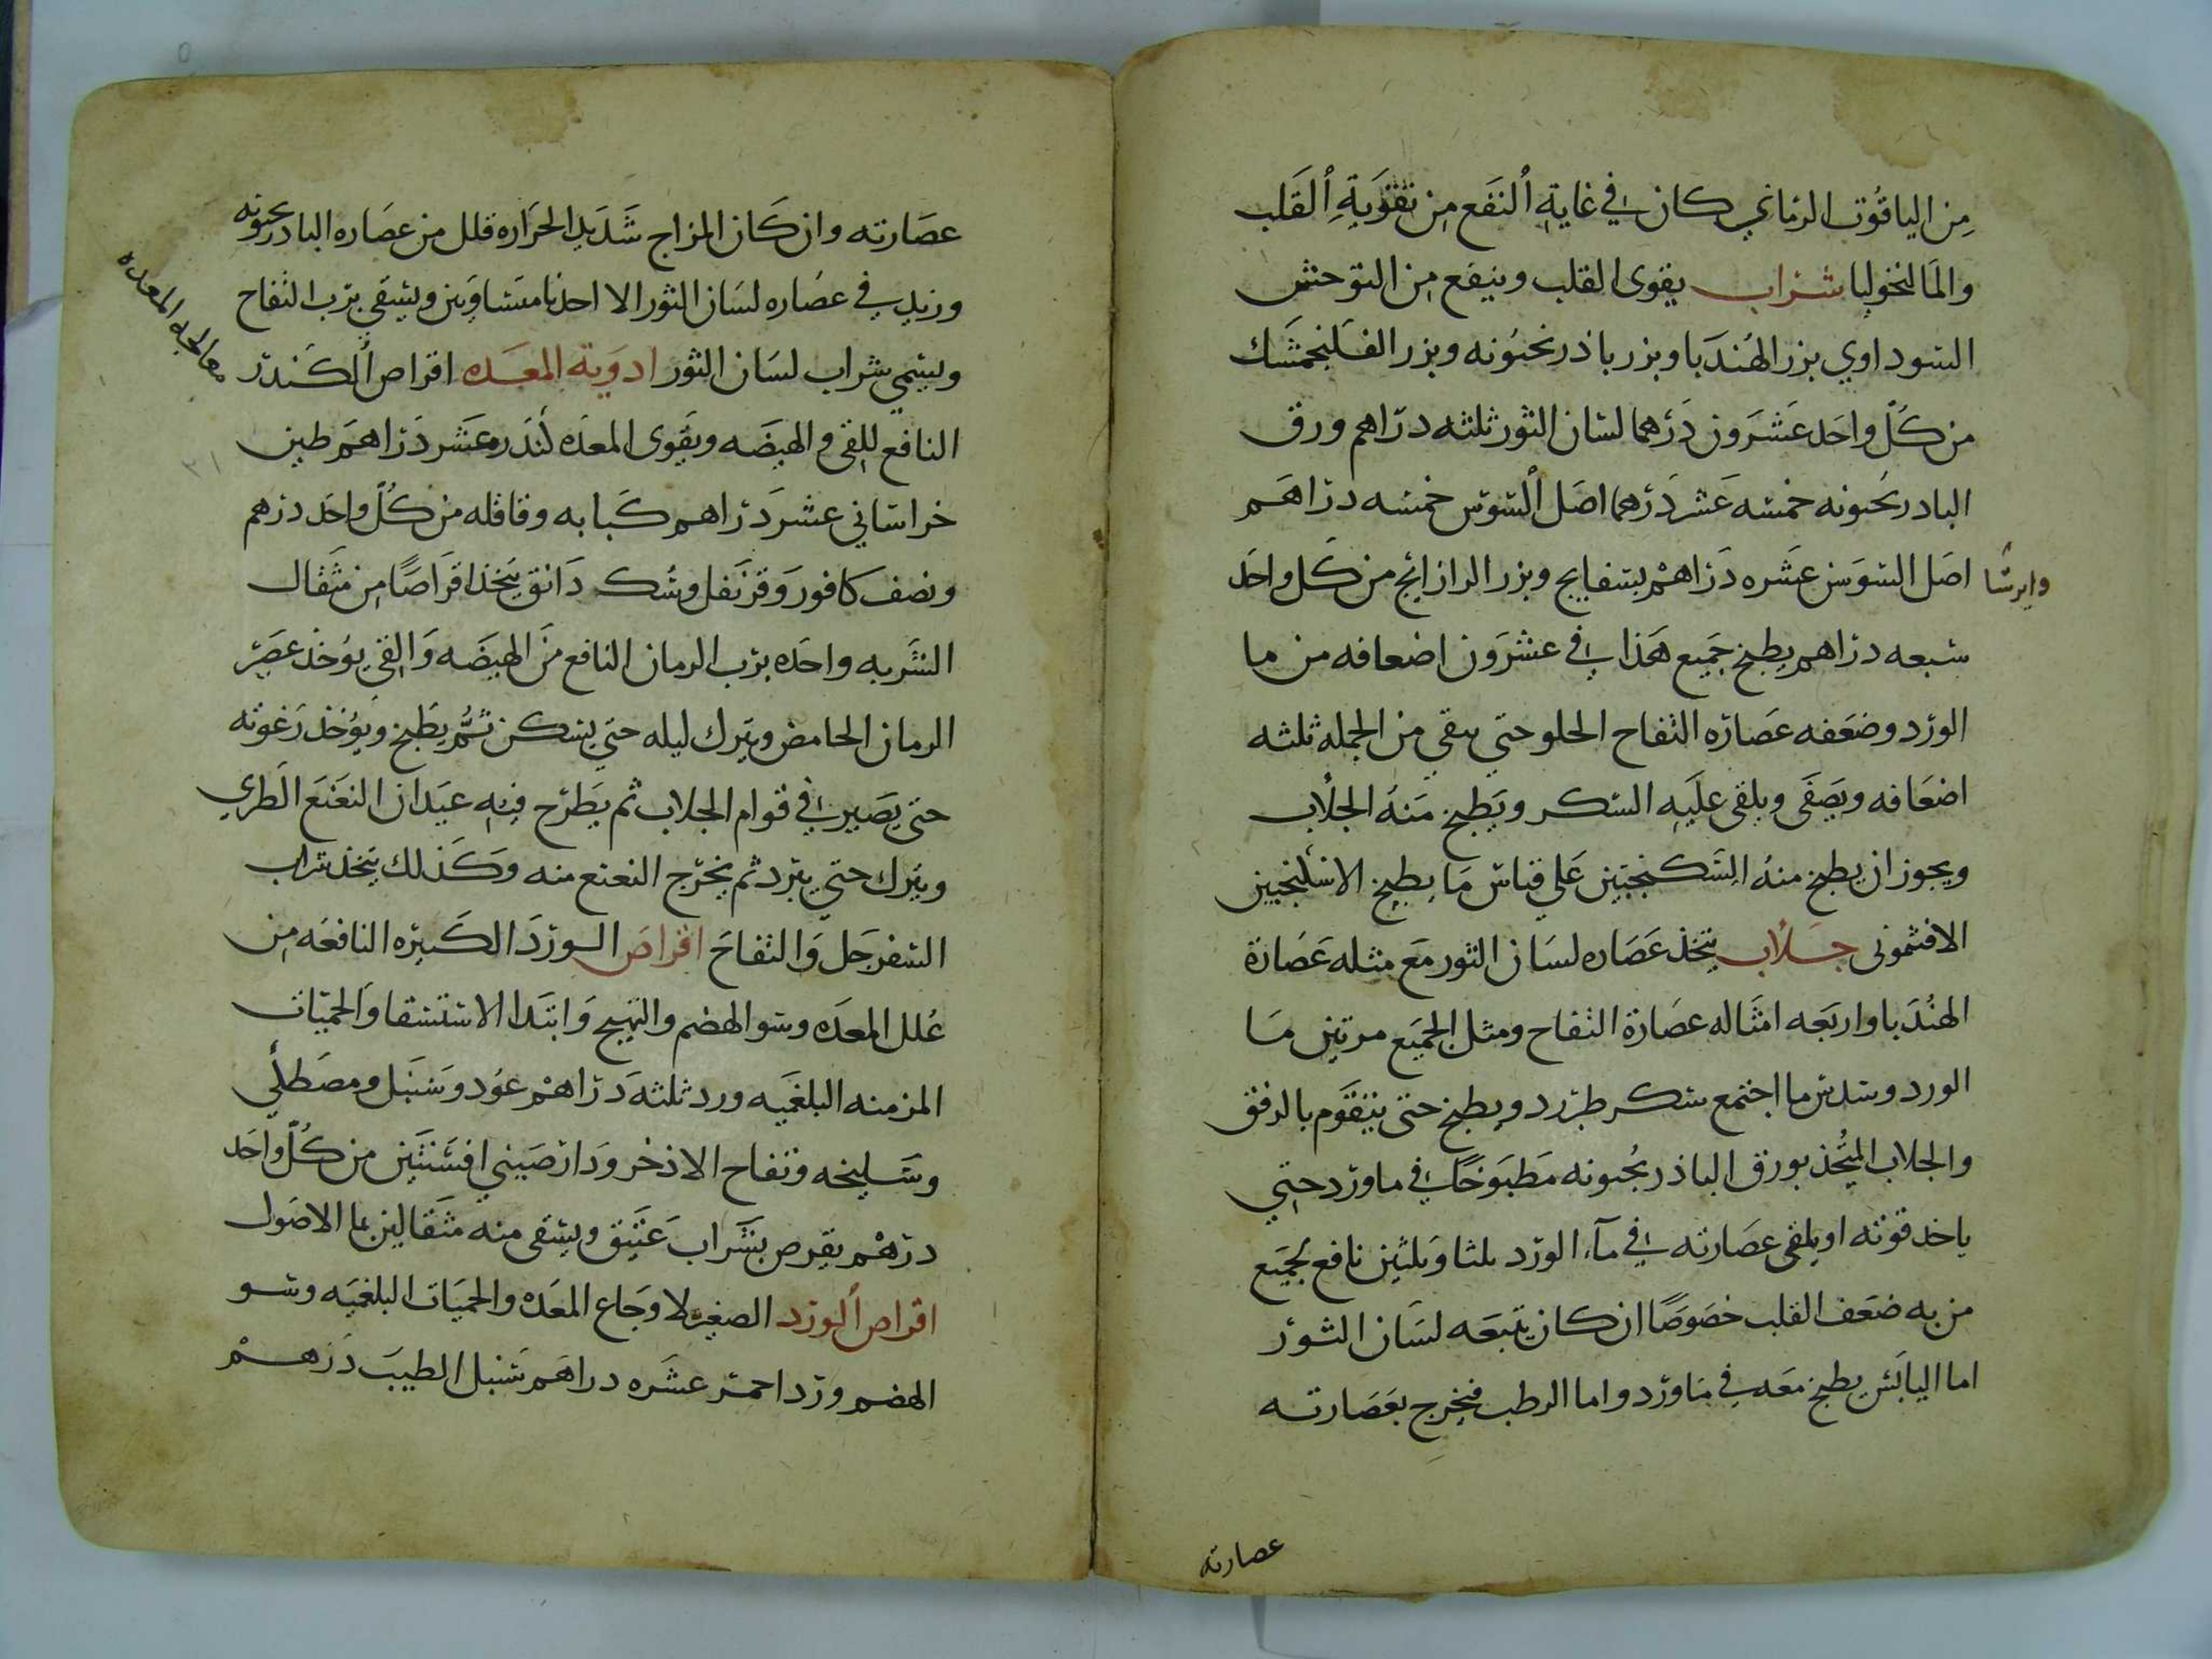 من الياقوت الرماني كان في غاية النفع من تقوية القلب
والمالنخوليا شراب يقوى القلب وينفع من التوحش
السوداوي بزر الهندبا وبزر باذرنجبونه وبزر الفلنجمشك
من كل واحد عشرون درهما لسان الثور ثلثه دراهم ورق
البادرنجبونه خمسه عشر درهما اصل السوس خمسه دراهم
وايرسا اصل السوسن عشره دراهم بسفايج وبزر الرازيانج من كل واحد
سبعه دراهم يطبخ جميع هذا في عشرون اضعافه من ما
الورد وضعفه عصاره التفاح الحلو حتى يبقى من الجمله ثلثه
اضعافه ويصفى ويلقى عليه السكر ويطبخ منه الجلاب
ويجوز ان يطبخ منه السكنجبين على قياس ما يطبخ الاسكنجبين
الافثمونى جلاب يتخذ عصاره لسان الثور مع مثله عصارة
الهندبا واربعه امثاله عصارة التفاح ومثل الجميع مرتين ما
الورد وسدس ما اجتمع سكر طبرزد ويطبخ حتى يتقوم بالرفق
والجلاب المتخذ بورق الباذرنجبونه مطبوخا في ماورد حتى
ياخذ قوته او يلقى عصارته في مآء الورد ثلثا وثلثين نافع لجميع
من به ضعف القلب خصوصا ان كان يتبعه لسان الثور
اما اليابس يطبخ معه في ماورد واما الرطب فيخرج بعصارته
عصارته
عصارته وان كان المزاج شديد الحراره قلل من عصاره البادرنجبونه
وزيد في عصاره لسان الثور الا احدنا متساوين ويسقى برب التفاح
ويسمى شراب لسان الثور ادوية المعده اقراص الكندر
معالجه المعده
النافع للقي والهيضه ويقوى المعده كندر عشر دراهم طين
خراساني عشر دراهم كبابه وقاقله من كل واحد درهم
ونصف كافور وقرنفل وسك دانق يتخذ اقراصا من مثقال
الشربه واحده برب الرمان النافع من الهيضه والقي يوخذ عصير
الرمان الحامض ويترك ليله حتى يسكن ثم يطبخ ويوخذ رغوته
حتى يصير في قوام الجلاب ثم يطرح فيه عيدان النعنع الطري
ويترك حتى يبرد ثم يخرج النعنع منه وكذلك يتخذ شراب
السفرجل والتفاح اقراص الورد الكبيره النافعه من
علل المعده وسو الهضم والتهيج وابتدا الاستسقا والحميات
المزمنه البلغميه ورد ثلثه دراهم عود وسنبل ومصطكي
وسليخه وتفاح الاذخر ودارصيني افسنتين من كل واحد
درهم يقرص بشراب عتيق ويسقى منه مثقالين بما الاصول
اقراص الورد الصغير لاوجاع المعده والحميات البلغميه وسو
الهضم ورد احمر عشره دراهم سنبل الطيب درهم